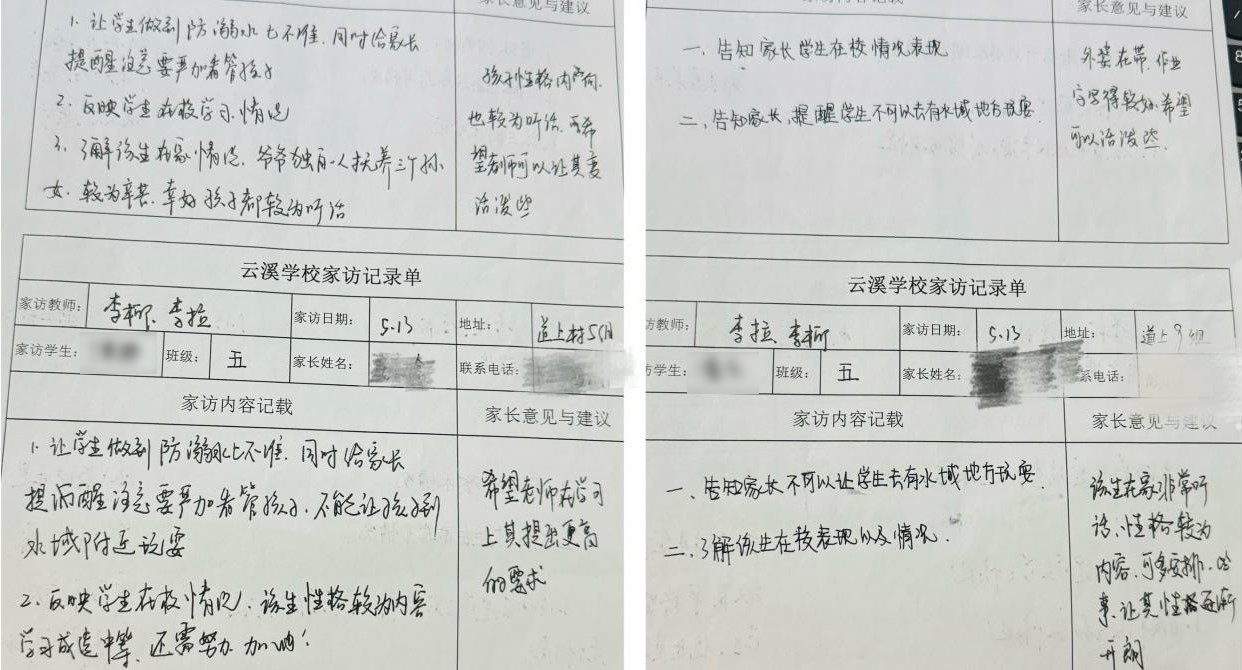 家长意见与建议
1. 让学生做到防溺水七不准，同时给家长
提醒注意要严加看管孩子
2. 反映学生在校学习情况
3. 了解该生在家情况，爷爷独自一人抚养三个孙
女，较为辛苦，幸好孩子都较为听话
孩子性格内向，
也较为听话，希
望老师可以让其变
活泼些
云溪学校家访记录单
家访教师： 李柳、李拉
家访日期： 5.13
地址： 道上村5组
家访学生：
班级： 五
家长姓名：
联系电话：
家访内容记载
家长意见与建议
1. 让学生做到防溺水七不准，同时给家长
提醒注意要严加看管孩子，不能让孩子到
水域附近玩耍
2. 反映学生在校情况，该生性格较为内容
学习成造中等，还需努力加油！
希望老师在学习
上其提出更高
的要求
家长意见与建议
一、告知家长学生在校情况表现
二、告知家长，提醒学生不可以去有水域地方玩耍
外婆在带，作业
字写得较好，希望
可以活泼些.
云溪学校家访记录单
访教师： 李拉 李柳
家访日期： 5.13
地址： 道上9组
访学生：
班级： 五
家长姓名：
系电话：
家访内容记载
家长意见与建议
一、告知家长不可以让学生去有水域地方玩耍
二、了解该生在校表现以及情况.
该生在家非常听
话，性格较为
内容，可多安排一些
事，让其性格逐渐
开朗